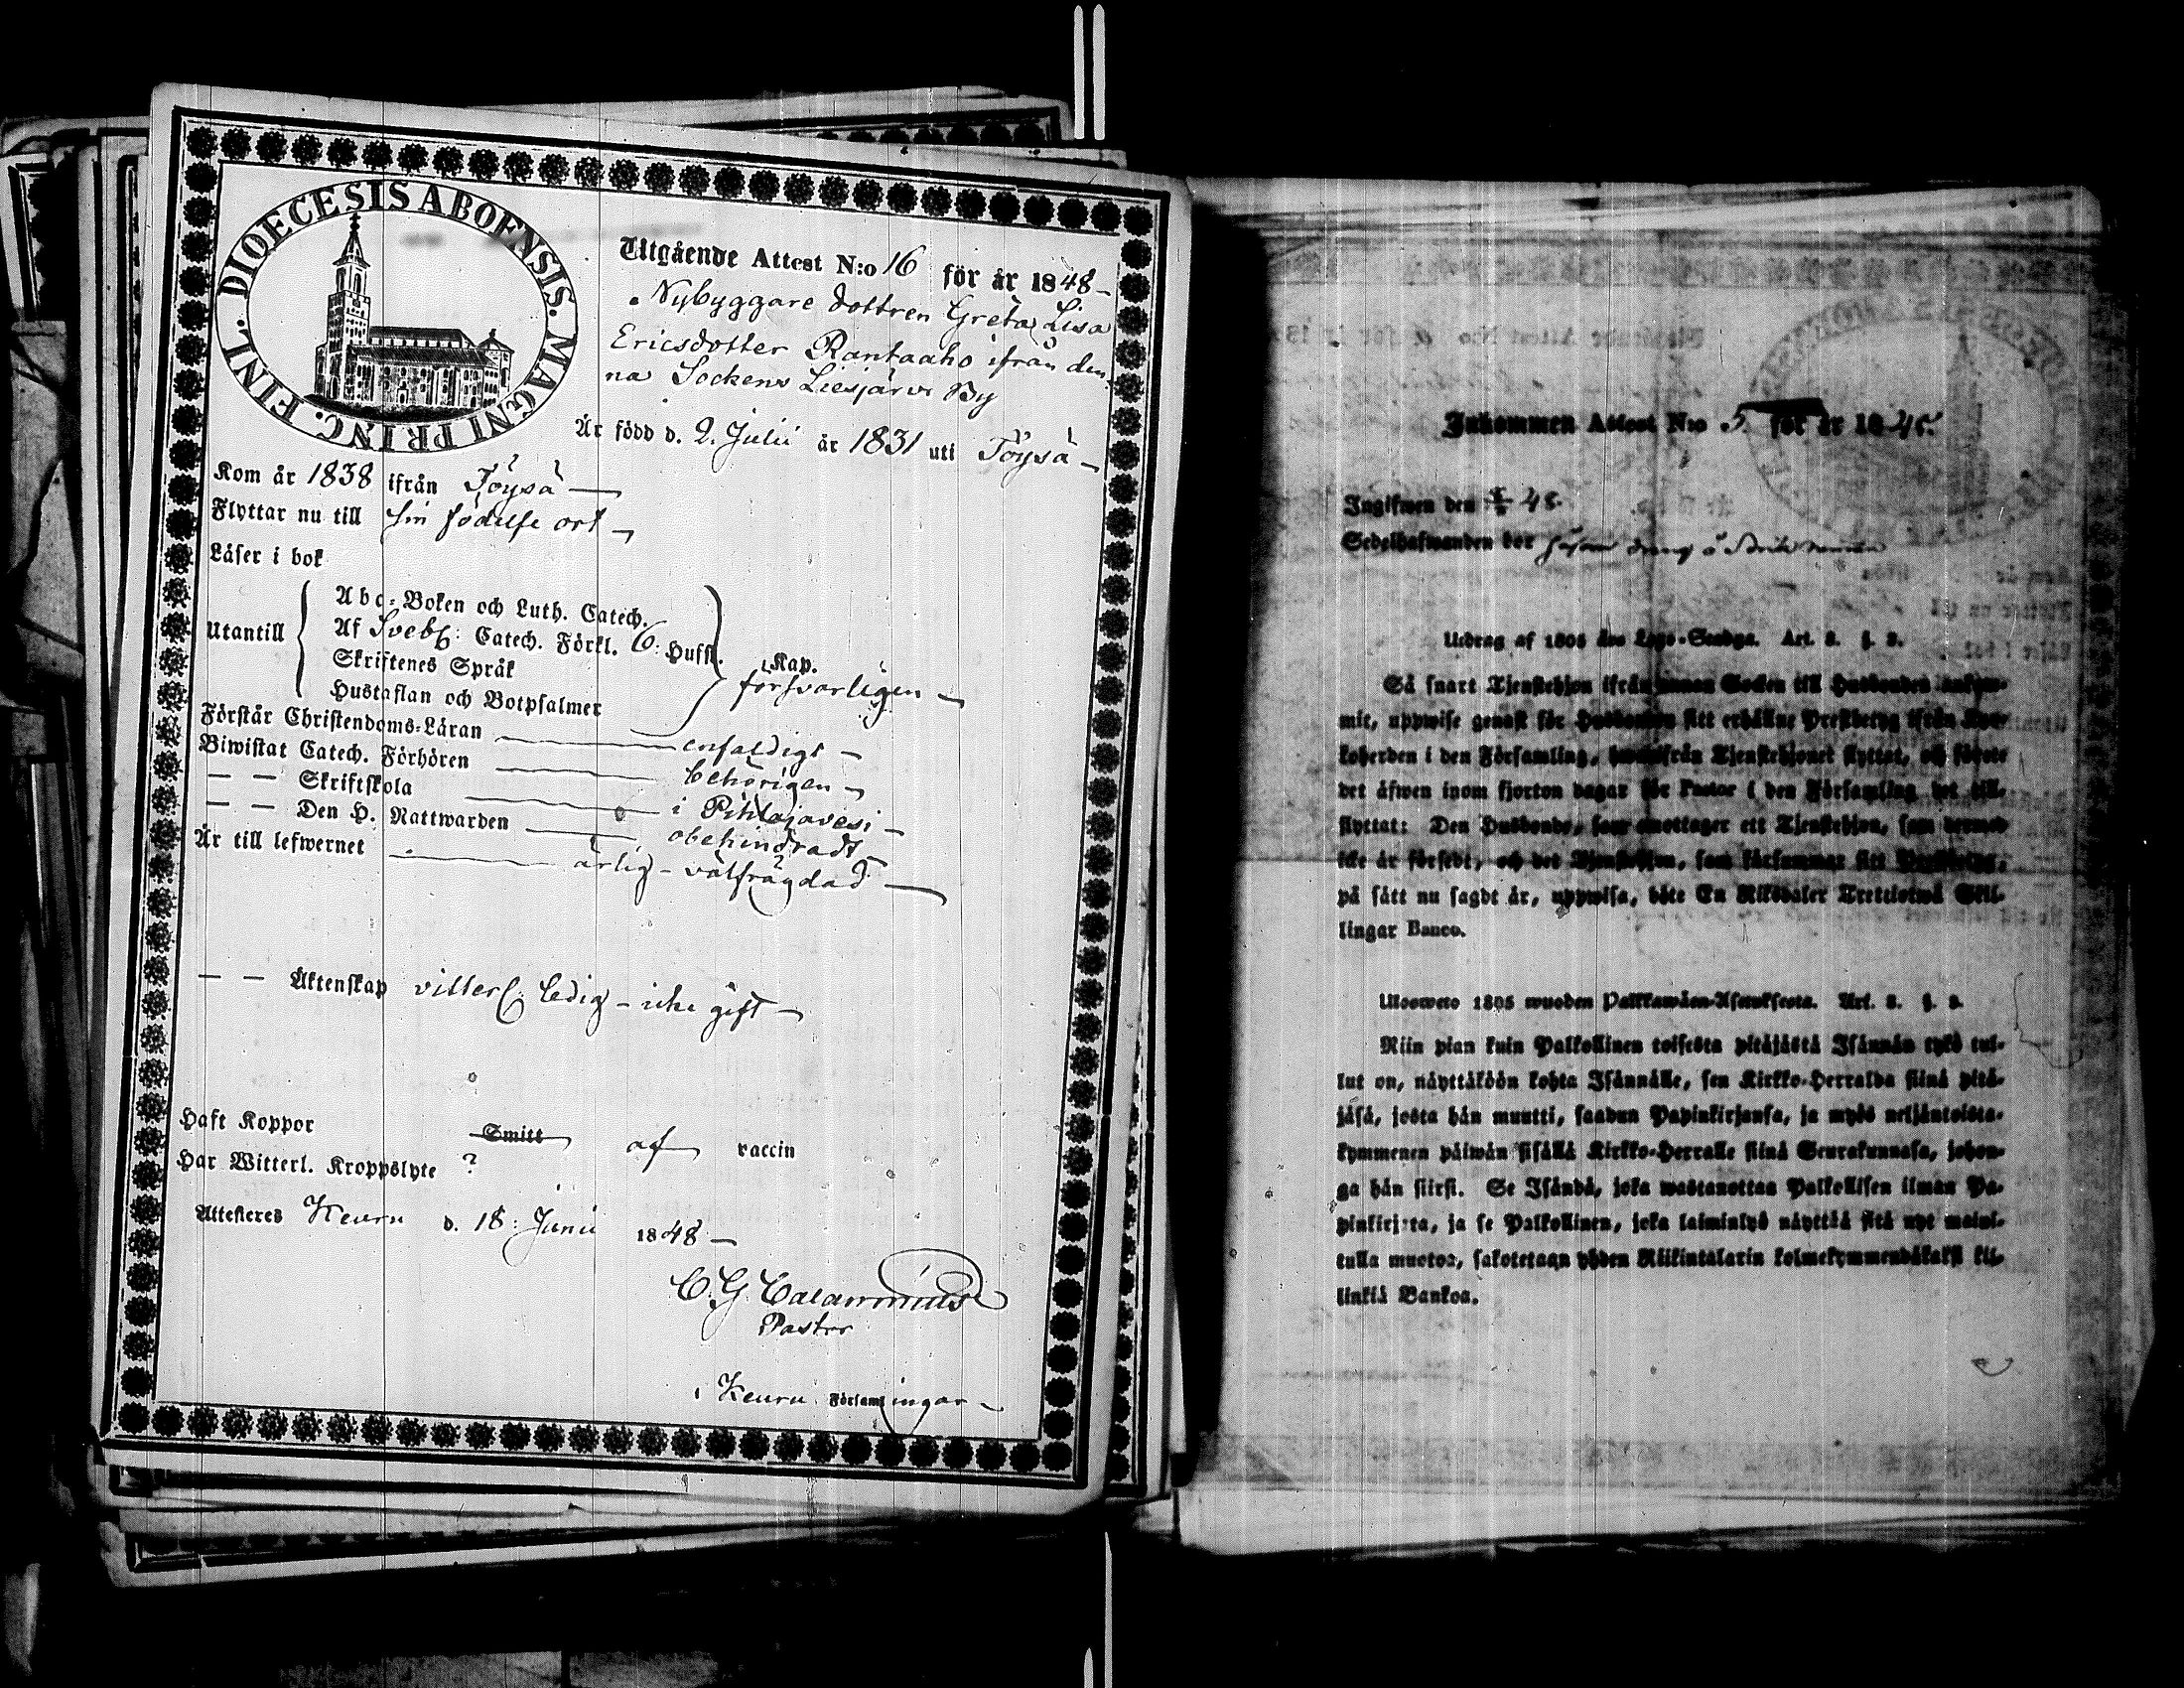 DIOECESIS ABOENSIS. MAGNI PRINC. FINL.
Utgående Attest N:o 16 för år 1848 —
Nybyggare dottren Greta Lisa
Ericsdotter Rantaaho ifrån den-
na Sockens Liesjärvi By
Är född d. 2. Julii år 1831 uti Töysä —
Kom år 1838 ifrån Töysä —
Flyttar nu till sin födelse ort —
Läser i bok
Abc-Boken och Luth. Catech.
Utantill Af Sveb: Catech. Förkl. 6: Hufst. Kap.
Skriftenes Språk försvarligen —
Hustaflan och Botpsalmer
Förstår Christendoms-Läran — enfaldigt —
Biwistat Catech. Förhören — behörigen —
— — Skriftskola — i Pihlajavesi —
— — Den H. Nattwarden — obehindradt
Är till lefwernet — ärlig - välfrägdad —
— — Äktenskap vitterl: ledig - icke gift —
Haft Koppor Smitt af vaccin
Har Witterl. Kroppslyte ?
Attesteras Keuru d. 18: Junii 1848 —
Pastor
i Keuru Församlingar —
Inkommen Attest N:o 5 för år 1848.
Ingifwen den 48.
Sedelhafwanden bor
Utdrag af 1805 års Lego-Stadga. Art. 3. §. 3.
Så snart Tjenstehjon ifrån annan Socken till Husbonden ankom-
mit, uppwise genast för Husbonden sitt erhållne Prestbetyg ifrån Kyr-
koherden i den Församling, hwarifrån Tjenstehjonet flyttat, och förete
det äfwen inom fjorton dagar för Pastor i den Församling det till-
flyttat: Den Husbonde, som emottager ett Tjenstehjon, som dermed
icke är försedt, och det Tjenstehjon, som försummar sitt Prestbetyg,
på sätt nu sagdt är, uppwisa, böte En Riksdaler Trettiotwå Skil-
lingar Banco.
Ulosweto 1805 wuoden Palkkawäen-Asetuksesta. Art. 3. §. 3.
Niin pian kuin Palkollinen toisesta pitäjästä Isännän tykö tul-
lut on, näyttäköön kohta Isännälle, sen Kirkko-Herralda siinä pitä-
jäsä, josta hän muutti, saadun Papinkirjansa, ja myös neljäntoista-
kymmenen päiwän sisällä Kirkko-Herralle siinä Seurakunnasa, johon-
ga hän siirsi. Se Isändä, joka wastanottaa Palkollisen ilman Pa-
pinkirjata, ja se Palkollinen, joka laiminlyö näyttää sitä nyt maini-
tulla muotoa, sakotetaan yhden Riikintalarin kolmekymmendäkaksi kil-
linkiä Bankoa.